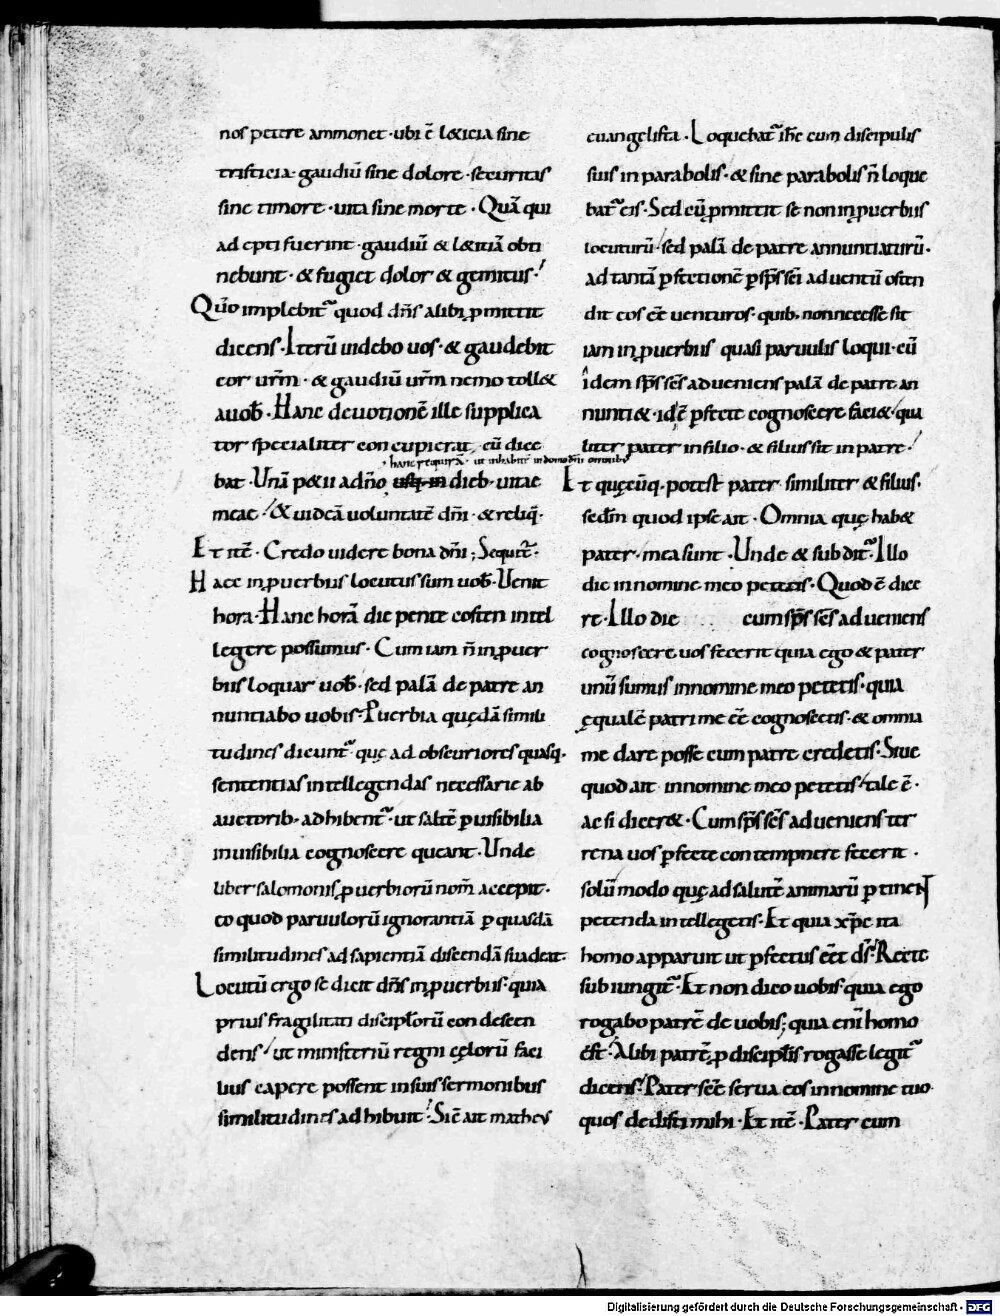 nos petere ammonet · ubi ē l&icia sine
tristicia · gaudiū sine dolore · securitas
sine timore · uita sine morte · Quā qui
ad epti fuerint · gaudiū & l&itiā obti
nebunt · & fugiet dolor & gemitus ·
Quo implebit᷑ quod dn̄s alibi ꝓmittit
dicens · Iterū uidebo uos · & gaudebit
cor ur̄m · & gaudiū ur̄m nemo toll&
a uob̄ · Hanc deuotionē ille supplica
tor specialiter concupierat, cū dice
· hanc requirā · ut inhabitē in domo dn̄i omnibꝰ
bat · Unā p&ii a dn̄o usq; in dieb· uitae
meae · & uideā uoluntatē dn̄i · & reliq̄ ·
Et itē · Credo uidere bona dn̄i ; Sequit᷑ ·
Haec in ꝓuerbiis locutus sum uob̄ · Uenit
hora · Hanc horā die pente costen intel
legere possumus · Cum iam n̄ in ꝓuer
biis loquar uob̄ · sed palā de patre an
nuntiabo uobis · Ꝓuerbia quędā simili
tudines dicunt᷑ · quę ad obscuriores quasq·
sententias intellegendas necessarie ab
auctorib· adhibent᷑ · ut saltē ꝑ uisibilia
inuisibilia cognoscere queant · Unde
liber salomonis ꝓuerbiorū nom̄ accepit ·
eo quod paruulorū ignorantiā ꝑ quasdā
similitudines ad sapientiā discendā suadeat ·
Locutū ergo se dicit dn̄s in ꝓuerbiis · quia
prius fragilitati discipl̄orū condescen
dens · ut ministeriū regni cęlorū faci
lius capere possent in suis sermonibus
similitudines adhibuit · Sic̄ ait matheus
euangelista · Loquebat᷑ ih̄c cum discipulis
suis in parabolis · & sine parabolis n̄ loque
bat᷑ eis · Sed cū ꝓmittit se non in ꝓuerbiis
locuturū · sed palā de patre annuntiaturū ·
ad tantā ꝑfectionē ꝑ sp̄s sc̄i aduentū osten
dit eos eē uenturos · quib· non necesse sit
iam in ꝓuerbiis quasi paruulis loqui · cū
idem sp̄s sc̄s adueniens palā de patre an
nunti& · id ē ꝑfecte cognoscere faci& · qua
liter pater in filio · & filius sit in patre ·
Et quęcūq· potest pater similiter & filius ·
scdm̄ quod ipse ait · Omnia quę hab&
pater · mea sunt · Unde & subdit᷑ · Illo
die in nomine meo petetis · Quod ē dice
re · Illo die cum sp̄s sc̄s adueniens
cognoscere uos fecerit quia ego & pater
unū sumus in nomine meo petetis · quia
ęqualē patri me eē cognoscetis · & omnia
me dare posse cum patre credetis · Siue
quod ait in nomine meo petetis · tale ē ·
ac si dicer& · Cum sp̄s sc̄s adueniens ter
rena uos ꝑfecte contempnere fecerit ·
solū modo quę ad salutē animarū ꝑtinent
petenda intellegetis · Et quia xp̄c ita
homo apparuit ut ꝑfectus eēt ds̄ · Recte
subiungit᷑ · Et non dico uobis quia ego
rogabo patrē de uobis ; quia eni homo
est · Alibi patrē ꝓ discipl̄is rogasse legit᷑
dicens · Pater sc̄e serua eos in nomine tuo
quos dedisti mihi · Et itē · Pater cum